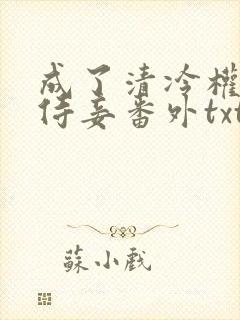 成了清冷權
侍妾番外txt
蘇小戲